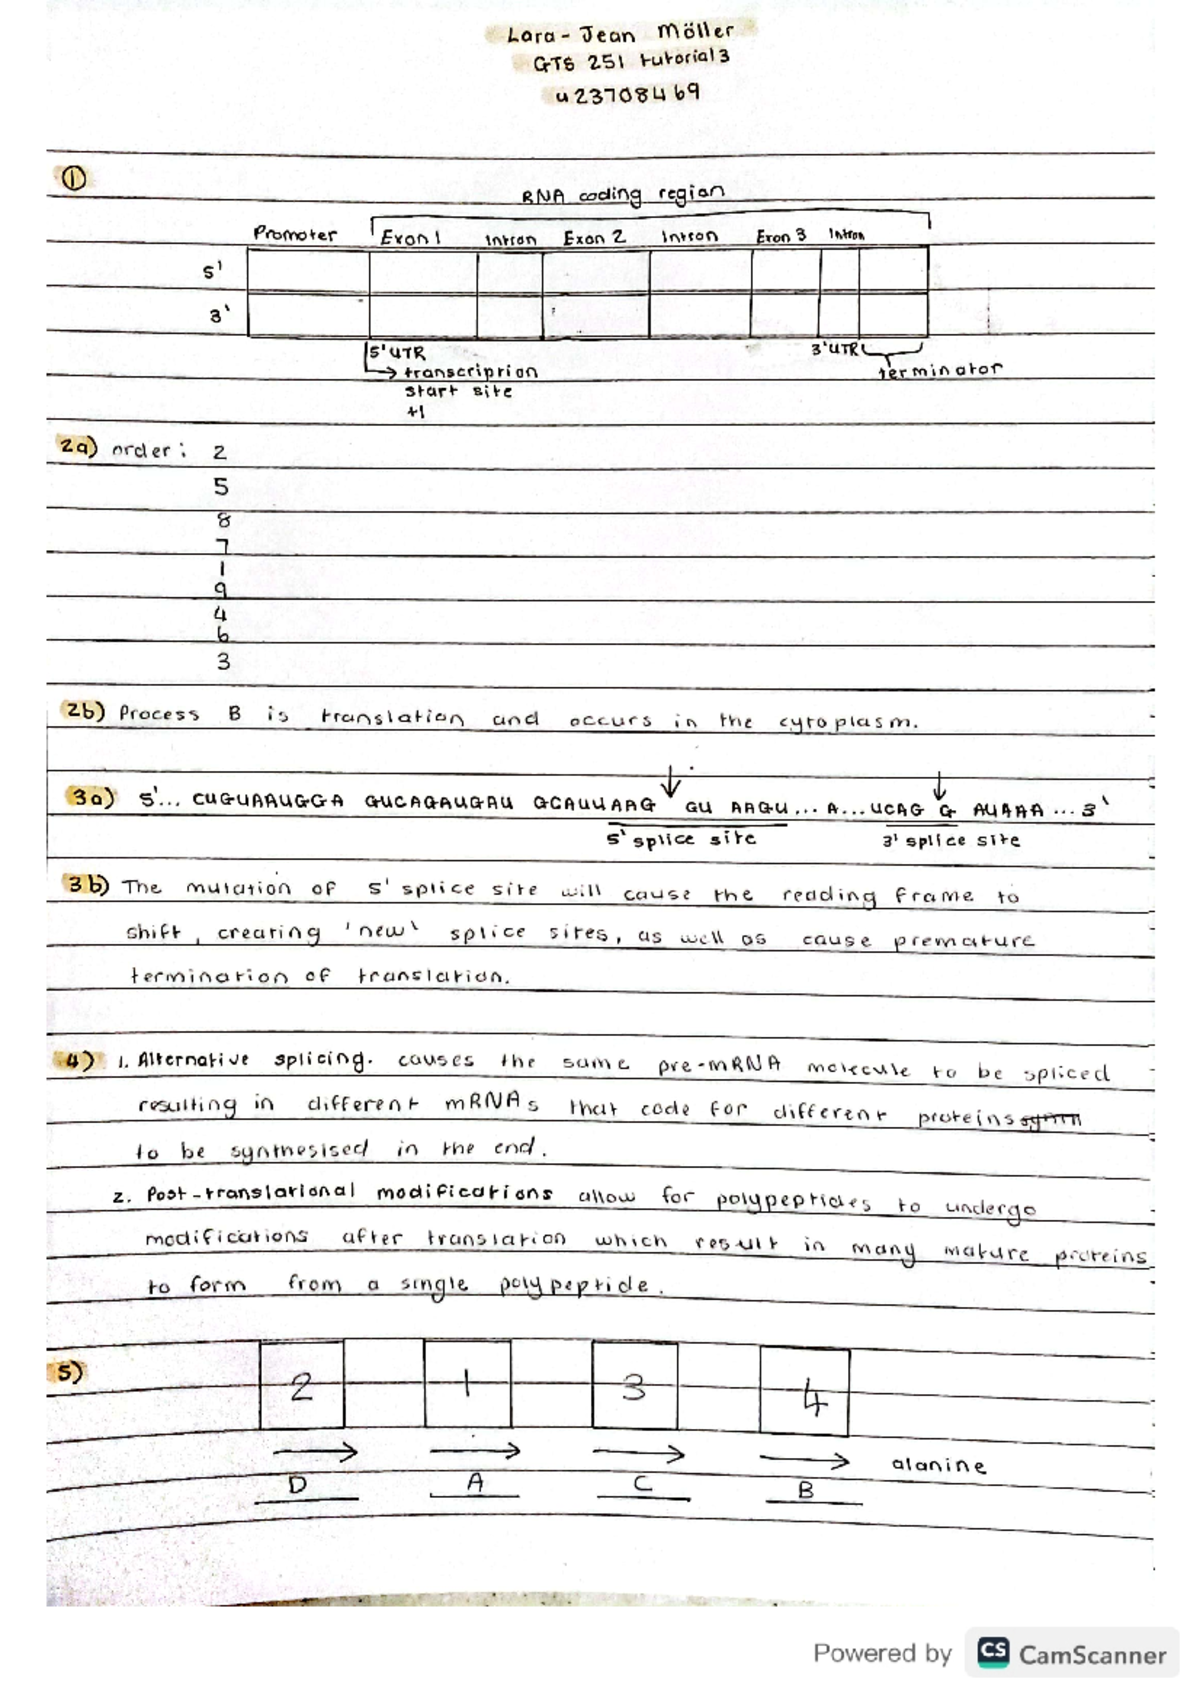 Lara-Jean Möller
GTS 251 tutorial 3
u23708469
①
RNA coding region
Promoter Exon 1 Intron Exon 2 Intron Exon 3 Intron
5'
3'
5'UTR 3'UTR
→ transcription terminator
start site
+1
2a) order: 2
5
8
7
1
9
4
6
3
2b) Process B is translation and occurs in the cytoplasm.
3a) 5'... CUGUAAUGGA GUCAGAUGAU GCAUUAAG GU AAGU ... A... UCAG G AUAAA ... 3'
5' splice site 3' splice site
3b) The mutation of 5' splice site will cause the reading frame to
shift, creating 'new' splice sites, as well as cause premature
termination of translation.
4) 1. Alternative splicing. causes the same pre-mRNA molecule to be spliced
resulting in different mRNAs that code for different proteins
to be synthesised in the end.
2. Post-translational modifications allow for polypeptides to undergo
modifications after translation which result in many mature proteins
to form from a single polypeptide.
5) 2 1 3 4
→ → → → alanine
D A C B
Powered by CS CamScanner